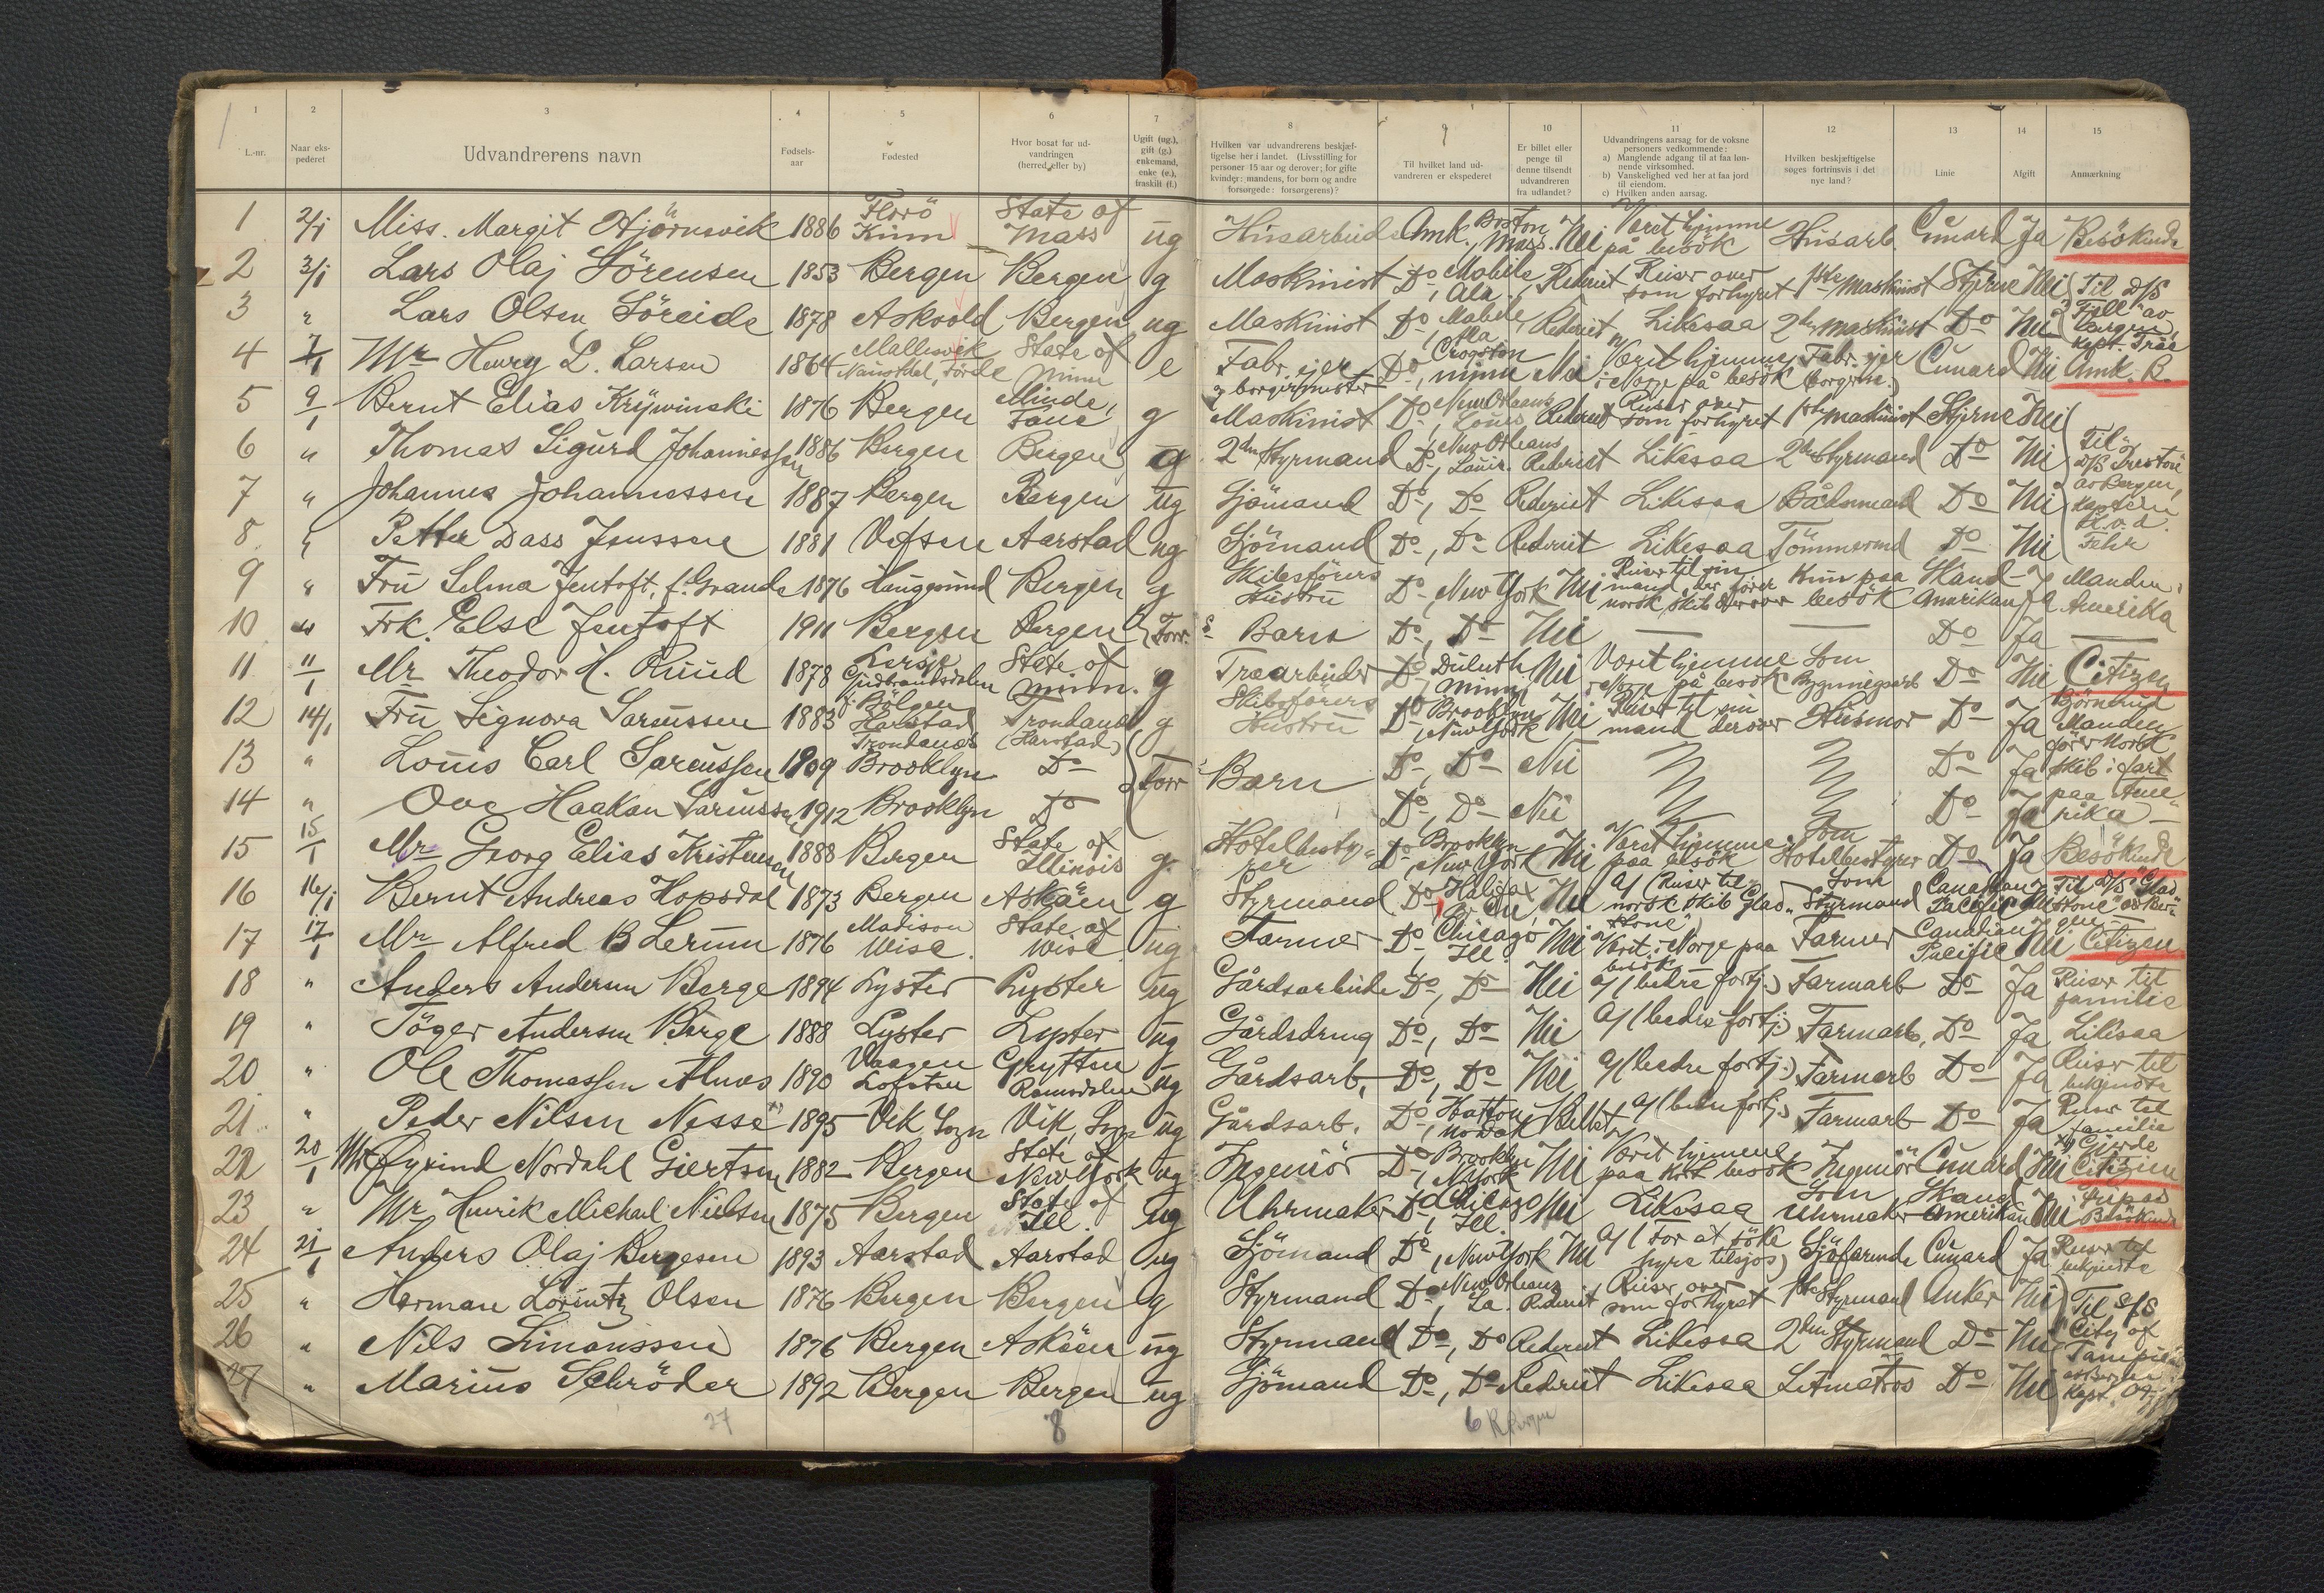 1 2 3 4 5 6 7 8 9 10 11 12 13 14 15
L.-nr.
Naar eks-
pederet
Udvandrerens navn
Fødsels-
aar
Fødested
Hvor bosat før ud-
vandringen
(herred eller by)
Ugift (ug.),
gift (g.)
enkemand,
enke (e.),
fraskilt (f.)
Hvilken var udvandrerens beskjæf-
tigelse her i landet. (Livsstilling for
personer 15 aar og derover; for gifte
kvinder: mandens, for børn og andre
forsørgede: forsørgerens)?
Til hvilket land ud-
vandreren er ekspederet
Er billet eller
penge til
denne tilsendt
udvandreren
fra udlandet?
Udvandringens aarsag for de voksne
personers vedkommende:
a) Manglende adgang til at faa løn-
nende virksomhed.
b) Vanskelighed ved her at faa jord
til eiendom.
c) Hvilken anden aarsag.
Hvilken beskjæftigelse
søges fortrinsvis i det
nye land?
Linie
Afgift
Anmærkning
1 2/1 Miss. Margit Hjörnevik 1886 Florö Kinn State of Mass ug Husarbeide Amk. Boston, Mass. Nei Værit hjemme på besök Husarb. Cunard Ja Besökende
2 3/1 Lars Olaj Sörensen 1853 Bergen Bergen g Maskinist Do, Mobile Ala. Rederiet Reiser over som forhyret 1ste Maskinist Stjerne Nei Til D/S
3 " Lars Olsen Söreide 1878 Askvold Bergen ug Maskinist Do, Mobile Ala Rederiet Likesaa 2den maskinist Do Nei "Fjell" av Bergen, Kapt.
4 7/1 Mr Henry L. Larsen 1864 Naustdal, Förde State of Minn e Fabr. ejer og borgermester Do, Minn Nei Værit hjemme i Norge på besök Fabr. ejer (borgerm.) Cunard Nei Amk. B.
5 9/1 Bernt Elias Krÿwinski 1876 Bergen Minde, Fane g Maskinist Do, New Orleans Rederiet Reiser over som forhyret 1ste maskinist Stjerne Nei
6 " Thomas Sigurd Johannessen 1886 Bergen Bergen g 2den Styrmand Do, New Orleans Rederiet Likesaa 2den Styrmand Do Nei Til D/S
7 " Johannes Johannessen 1887 Bergen Bergen ug Sjömand Do, Do Rederiet Likesaa Bådsmand Do Nei av Bergen, Kaptein
8 " Petter Dass Jenssen 1881 Vefsen Aarstad ug Sjömand Do, Do Rederiet Likesaa Tömmermd Do Nei Fehr
9 " Fru Selma Jentoft, f. Grande 1876 Haugesund Bergen g Skibsförers Hustru Do, New York Nei Reiser til sin mand, der förer norsk skib derover Kun paa besök Skand. Amerikan Ja Manden i Amerika
10 " Frk. Else Jentoft 1911 Bergen Bergen Forr. Barn Do, Do Nei — — Do Ja —
11 11/1 Mr Theodor H. Ruud 1878 Lesje Gudbrandsdalen State of Minn. g Træarbeider Do, Duluth Minn Nei Værit hjemme i Norge på besök Som Bygningsarb Do Nei Citizen
12 14/1 Fru Signora Sareussen 1883 Harstad Trondenes Trondenes (Harstad) g Skibsförers Hustru Do, Brooklyn New York Nei Reiser til sin mand derover Husmor Do Ja Manden
13 " Louis Carl Sareussen 1909 Brooklyn Do Forr Barn Do, Do Nei Do Ja förer Norsk skib i fart
14 " Ove Haakon Sareussen 1912 Brooklyn Do Do, Do Nei Do Ja paa Ame-rika —
15 15/1 Mr Georg Elias Kristensen 1888 Bergen State of Illinois g. Hotelbesty-rer Do, Brooklyn New York Nei Værit hjemme paa besök Som Hotelbestyrer Do Ja Besökende
16 16/1 Bernt Andreas Hopsdal 1873 Bergen Asköen g Styrmand Do, Halifax Nei a/ (Reiser til norsk skib Glad-stone) Som Styrmand Canadian Pacific Nei Til D/S "Glad-stone" av Ber-gen
17 17/1 Mr Alfred B Lerum 1876 Madison Wisc. State of Wisc ug Farmer Do, Chicago Ill. Nei Værit i Norge paa besök Farmer Canadian Pacific Nei Citizen
18 " Anders Andersen Berge 1894 Lyster Lyster ug Gårdsarbeide Do, Do Nei a/ (bedre fortj.) Farmarb Do Ja Reiser til familie
19 " Töger Andersen Berge 1888 Lyster Lyster ug Gårdsdreng Do, Do Nei a/ (bedre fortj.) Farmarb. Do Ja Likesaa
20 " Ole Thomassen Alnes 1890 Vaagen Lofoten Grytten Romsdalen ug Gårdsarb. Do, Do Nei a/ (bedre fortj.) Farmarb Do Ja Reiser til bekjendte
21 " Peder Nilsen Nesse 1895 Vik Sogn Vik, Sogn ug Gårdsarb. Do, Hatton No Dak Billet a/ (bedre fortj.) Farmarb Do Ja Reiser til familie
22 20/1 Mr Øyvind Nordahl Giertsen 1882 Bergen State of New York ug Ingeniör Do, Brooklyn N. York Nei Værit hjemme paa kort besök Ingeniör Cunard Nei Citizen
23 " Mr Henrik Michael Nielsen 1875 Bergen State of Ill. ug Uhrmaker Do, Chicago Ill. Nei Likesaa Som Uhrmaker Skand. Amerikan Nei Besökende
24 21/1 Anders Olaj Bergesen 1893 Aarstad Aarstad ug Sjömand Do, New York Nei a/ (For at söke hyre tilsjös) Sjöfarende Cunard Ja Reiser til bekjendte
25 " Herman Lorentz Olsen 1876 Bergen Bergen g Styrmand Do, New Orleans La. Rederiet Reiser over som forhyret 1ste Styrmand Anker Nei Til S/S
26 " Nils Simonssen 1876 Bergen Asköen ug Styrmand Do, Do Rederiet Likesaa 2den Styrmand Do Nei "City of Tampico"
27 " Marius Schröder 1892 Bergen Bergen ug Sjömand Do, Do Rederiet Likesaa Letmatros Do Nei av Bergen Kapt.
27 8 6